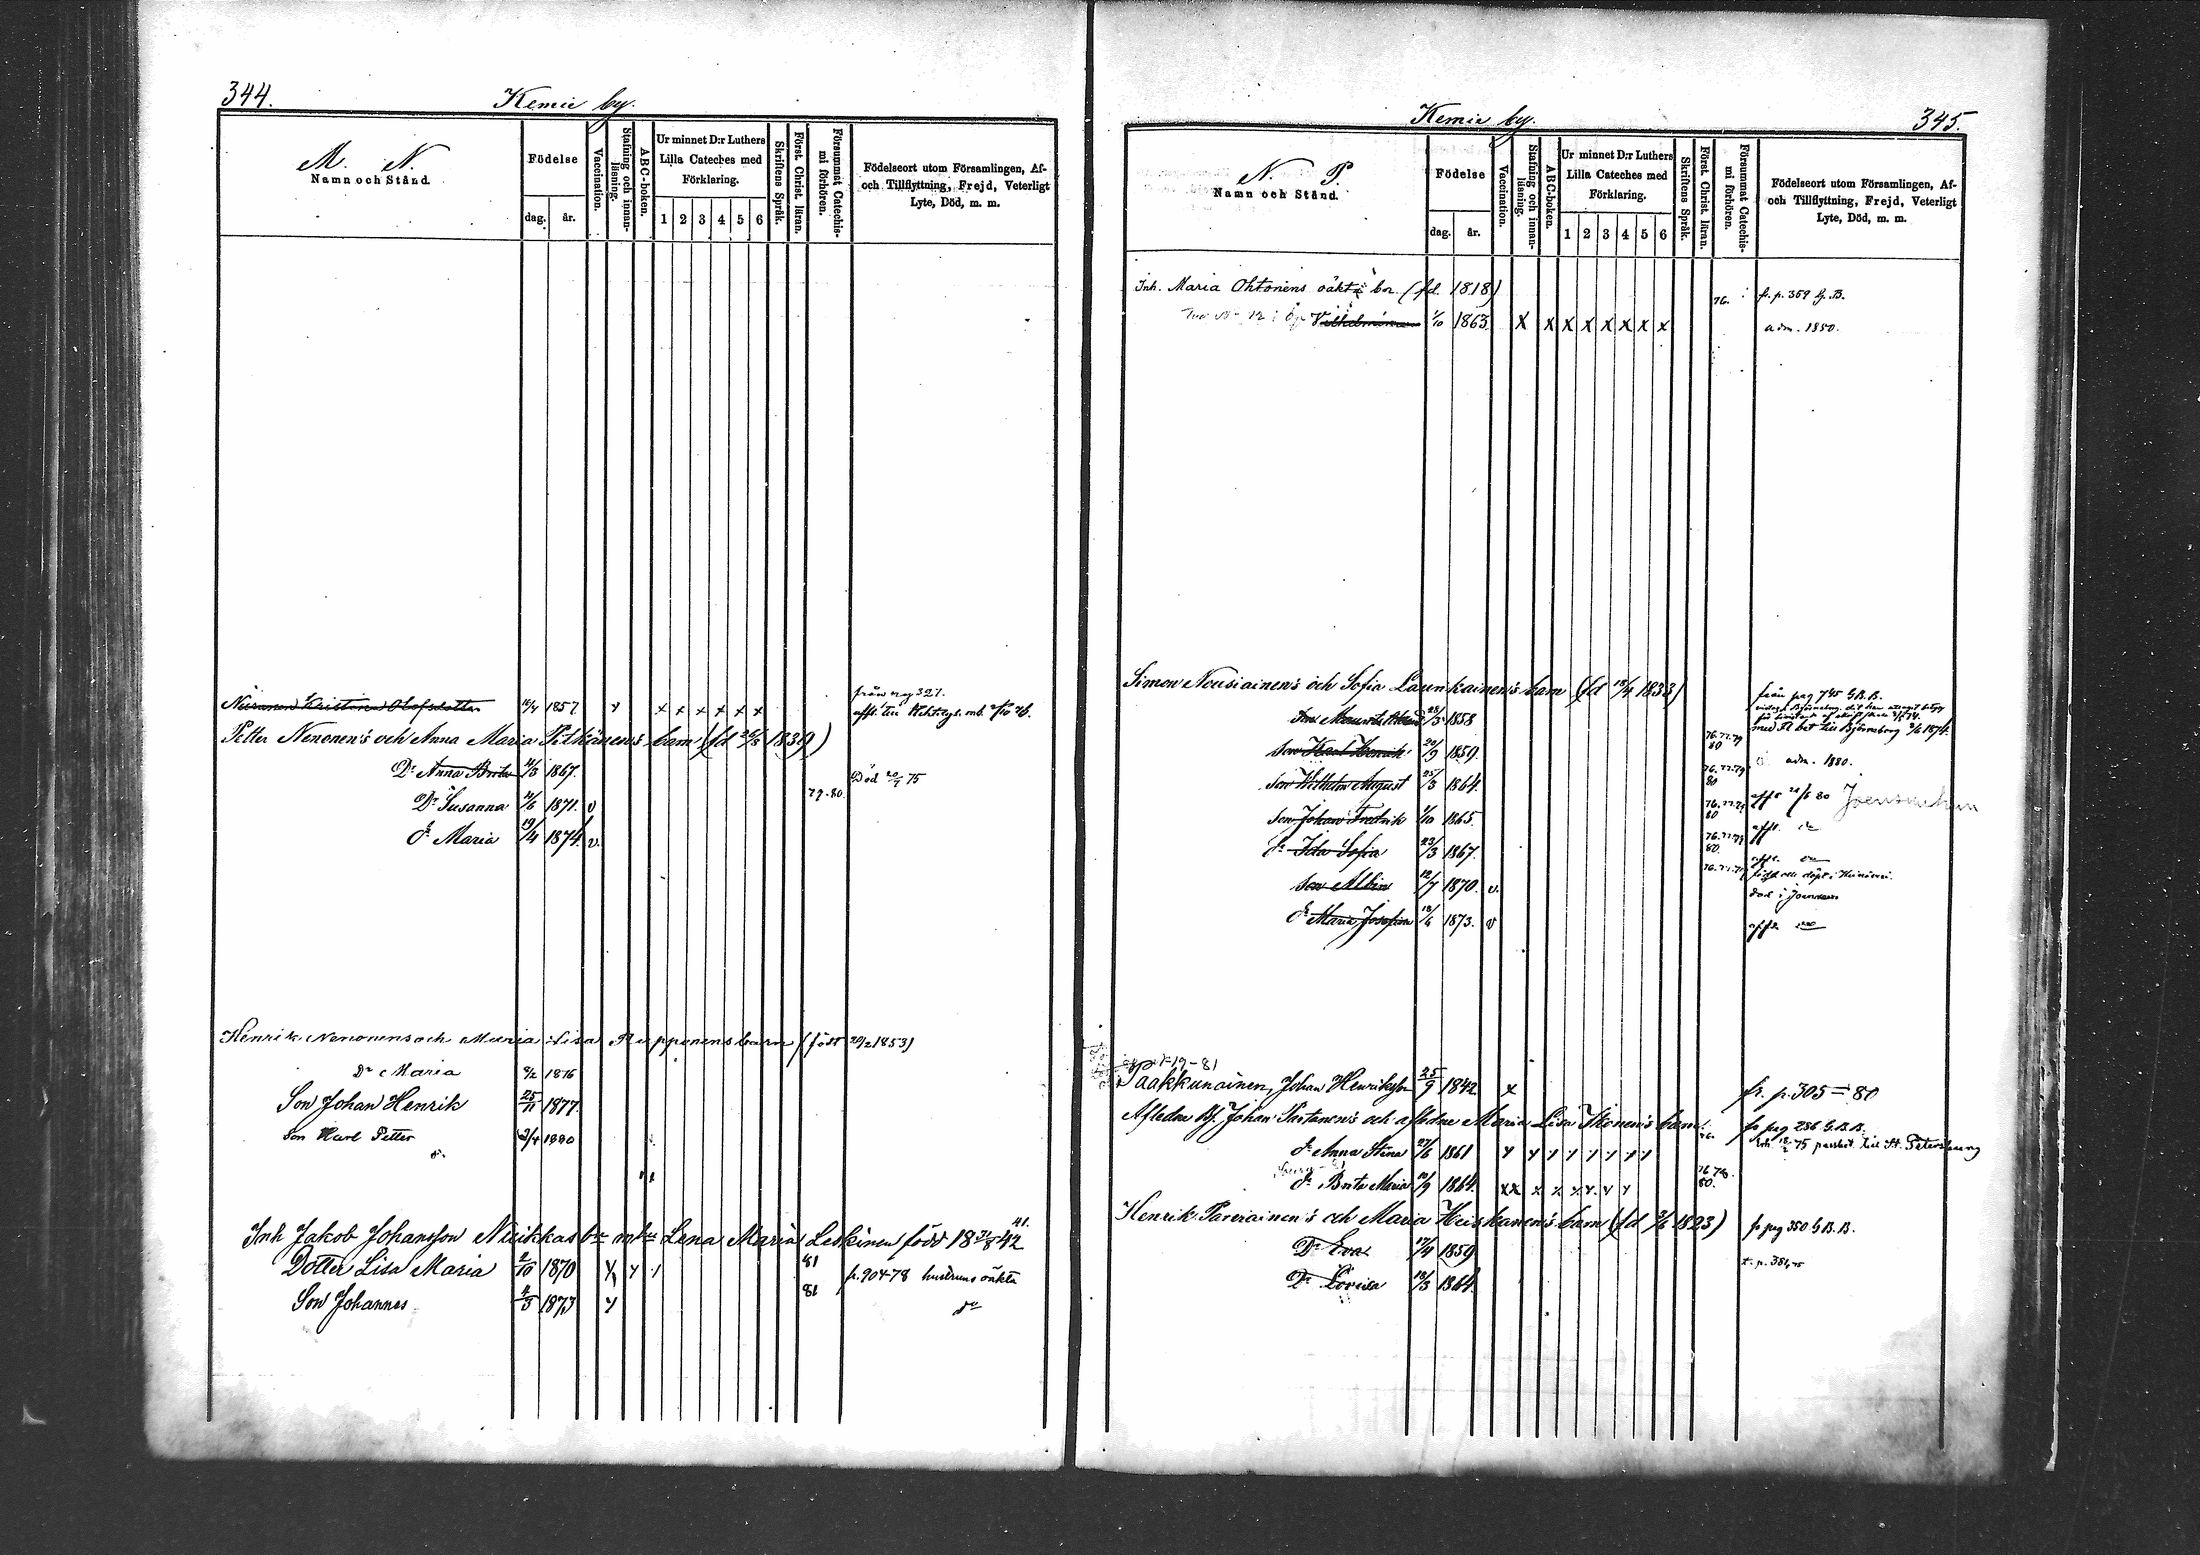 344.
Kemie by.
M. N.
Namn och Stånd.
Födelse
dag. år.
Vaccination.
Stafning och innanläsning.
ABC-boken.
Ur minnet D:r Luthers
Lilla Cateches med
Förklaring.
1 2 3 4 5 6
Skriftens Språk.
Först. Christ. läran.
Försummat Catechismi förhören.
Födelseort utom Församlingen, Af-
och Tillflyttning, Frejd, Veterligt
Lyte, Död, m. m.
från pag 327.
Kristina Olofsdotter 16/4 1857 x x x x x x
Petter Nenonen's och Anna Maria Pitkänen's barn (fd 26/8 1839)
Dr Anna Brita 11/3 1867. Död 20/7 75
Dr Susanna 11/6 1871. v 79.80.
dr Maria 19/4 1874 v.
Henrik Nenonens och Maria Lisa Repponens barn (född 20/2 1853)
Dr Maria 9/2 1876
Son Johan Henrik 25/11 1877.
Son Karl Petter 3/4 1880
41.
Inh Jakob Johansson Nuikkas br m hu Lena Maria Leskinen född 18 31/8 42
Dotter Lisa Maria 2/10 1870 81 fr. 904-78 hustruns oäkta
Son Johannes 4/3 1873 81 do
Kemie by.
345.
N. P.
Namn och Stånd.
Födelse
dag. år.
Vaccination.
Stafning och innanläsning.
ABC-boken.
Ur minnet D:r Luthers
Lilla Cateches med
Förklaring.
1 2 3 4 5 6
Skriftens Språk.
Först. Christ. läran.
Försummat Catechismi förhören.
Födelseort utom Församlingen, Af-
och Tillflyttning, Frejd, Veterligt
Lyte, Död, m. m.
Inh. Maria Ohtonens oäkta bn. (fd. 1818) 76. fr. p. 359 G. B.
1/10 1863 X X X X X X X X adm. 1880.
Simon Nousiainen's och Sofia Launikainen's barn (fd 18/4 1833)
från pag 745 G.B.B.
25/3 1858 med fl. bet till Björneborg 2/6 1874.
Son Karl Henrik 20/9 1859. 76.77.79 80 adm. 1880.
Son Wilhelm August 25/3 1864. 76.77.79 80 Joensuuhun
Son Johan Fredrik 1/10 1865. 76.77.79 80
dr Ida Sofia 23/3 1867. 76.77.79 80.
Son Albin 12/7 1870. v. 76.77.79
död i Joensuu
dr Maria Josefina 18/6 1873. v
Paakkunainen, Johan Henriksson 25/9 1842 x fr. p. 305 = 80
Aflidne Bf. Johan Partanen's och aflidne Maria Lisa Ikonen's barn fr pag 286 G.B.B.
dr Anna Stina 27/6 1861 18/2 75 passbet. till St. Petersburg
dr Brita Maria 10/9 1864. 76.78. 80.
Henrik Parviainen's och Maria Heiskanen's barn (fd 2/6 1823) fr pag 350 G.B.B.
Dr Eva 17/4 1859
Dr Lovisa 18/3 1864.